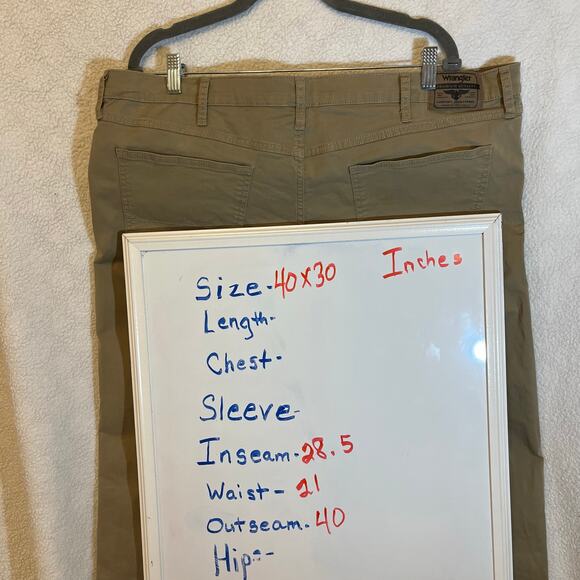 Wrangler
Size-40x30 Inches
Length-
Chest-
Sleeve-
Inseam-28.5
Waist-21
Outseam-40
Hips-